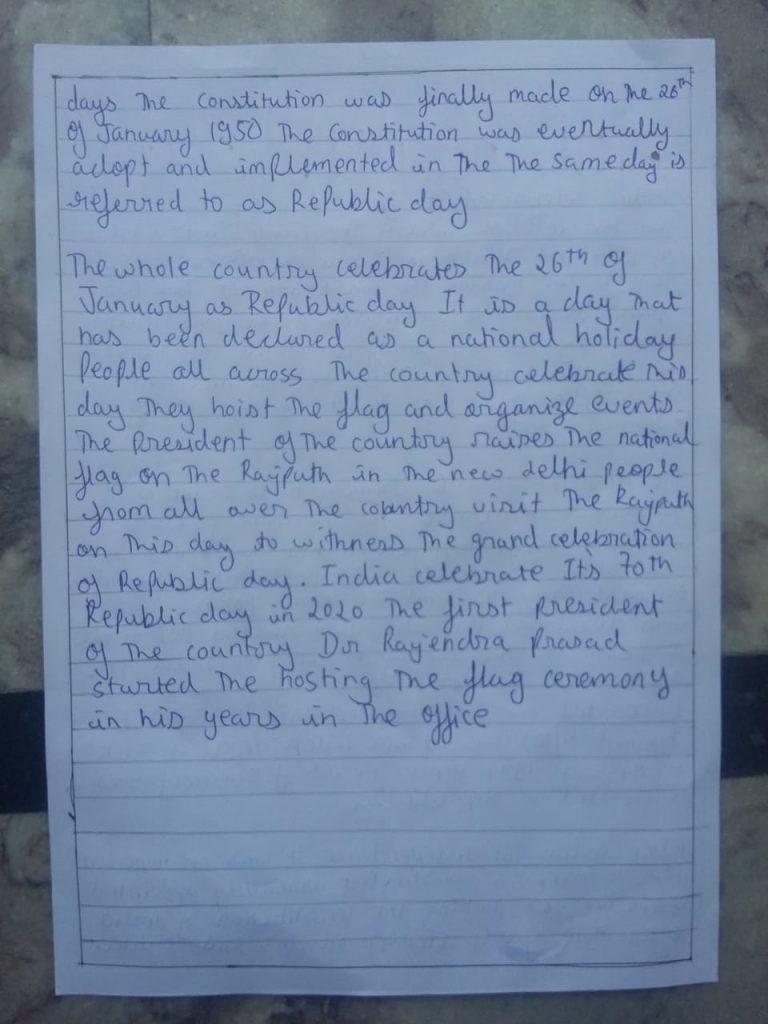 days The Constitution was finally made on The 26th
of January 1950 The Constitution was eventually
adopt and implemented in The The same day is
referred to as Republic day
The whole country celebrates The 26th of
January as Republic day It is a day That
has been declared as a national holiday
People all across The country celebrate This
day They hoist The flag and organize events
The President of The country raises The national
flag on The Rajputh in The new delhi people
from all over The country visit The Rajputh
on This day to withness The grand celebration
of Republic day. India celebrate Its 70th
Republic day in 2020 The first President
of The country Dr Rajendra Prasad
started The hosting The flag ceremony
in his years in The office